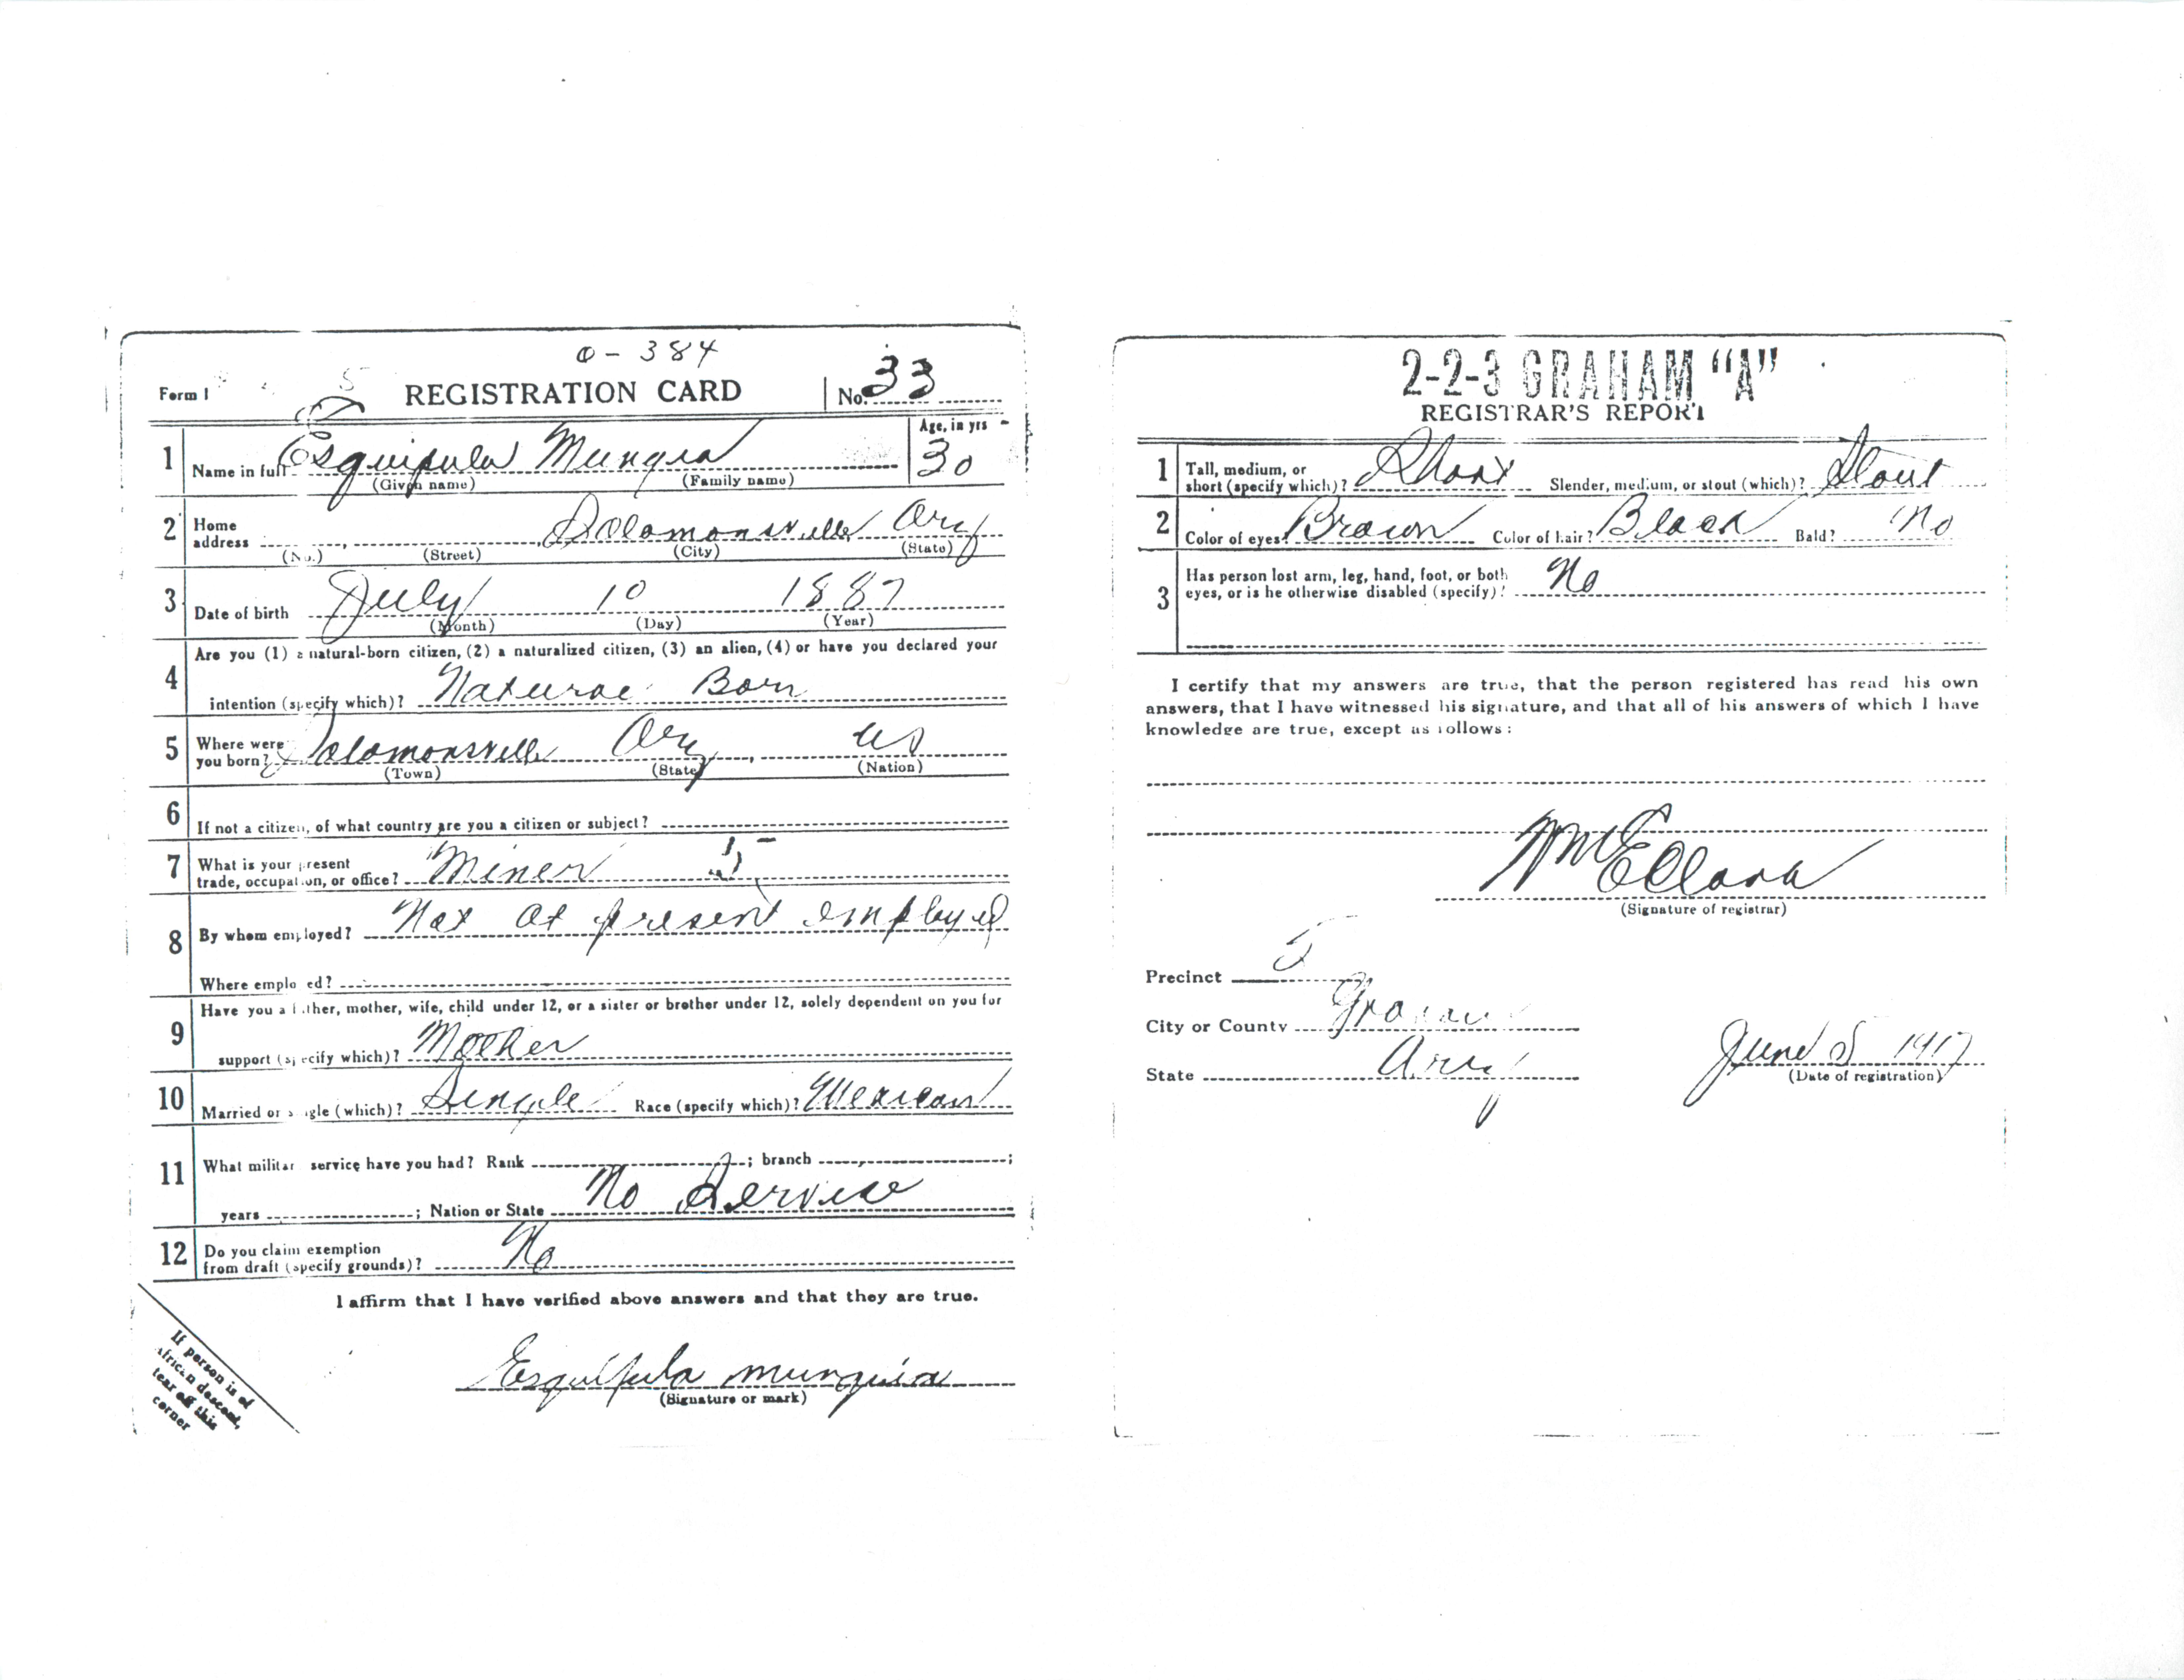 0 - 384
Form 1 REGISTRATION CARD No. 33
5
1 Name in full Esquipula Mungia Age, in yrs 30
(Given name) (Family name)
2 Home address Solomonsville Ariz
(No.) (Street) (City) (State)
3 Date of birth July 10 1887
(Month) (Day) (Year)
4 Are you (1) a natural-born citizen, (2) a naturalized citizen, (3) an alien, (4) or have you declared your
intention (specify which)? Natural Born
5 Where were you born? Solomonsville Ariz, US
(Town) (State) (Nation)
6 If not a citizen, of what country are you a citizen or subject?
7 What is your present
trade, occupation, or office? Miner 5
8 By whom employed? Not at present employed
Where employed?
9 Have you a father, mother, wife, child under 12, or a sister or brother under 12, solely dependent on you for
support (specify which)? Mother
10 Married or single (which)? Single Race (specify which)? Mexican
11 What military service have you had? Rank ; branch ;
years ; Nation or State No Service
12 Do you claim exemption
from draft (specify grounds)? No
I affirm that I have verified above answers and that they are true.
Esquipula munguia
(Signature or mark)
If person is of
African descent,
tear off this
corner
2-2-3 GRAHAM "A"
REGISTRAR'S REPORT
1 Tall, medium, or
short (specify which)? Short Slender, medium, or stout (which)? Stout
2 Color of eyes? Brown Color of hair? Black Bald? No
3 Has person lost arm, leg, hand, foot, or both
eyes, or is he otherwise disabled (specify)? No
I certify that my answers are true, that the person registered has read his own
answers, that I have witnessed his signature, and that all of his answers of which I have
knowledge are true, except as follows:
Wm E Clark
(Signature of registrar)
Precinct 5
City or County Graham
State Ariz June 5 1917
(Date of registration)